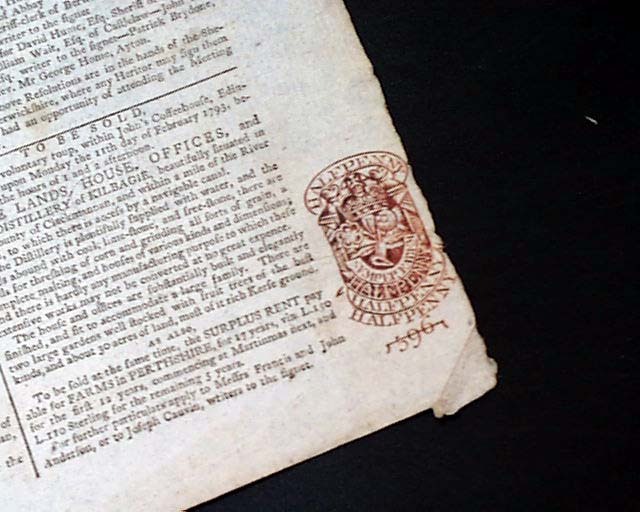 Abbey
Writer to the signet
for David Hume, Esq. Sheriff
William Wait, Esq. of Castlelaw—John
Esq. writer to the signet—Patrick Brydone,
Mr George Home, Ayton.
Resolutions are in the hands of the She-
Berwickshire, where any Heritor may sign them
had an opportunity of attending the Meeting
TO BE SOLD,
voluntary roup, within John's Coffeehouse, Edin-
upon Monday the 11th day of February 1793, be-
hours of 1 and 2 afternoon.
LANDS, HOUSE, OFFICES, and
DISTILLERY of KILBAGIE, beautifully situated in
county of Clackmannan, and within a mile of the River
to which there is access by a navigable canal.
The Distillery is plentifully supplied with water, and the
abound with coal, lime-stone, and free-stone; there are
for threshing of corn, and grinding all sorts of grain, a
making, and houses of various kinds and dimensions,
there is hardly any manufacturing purpose to which these
extensive works may not be converted at no great expence.
The house and offices are substantially built, and elegantly
finished, and fit to accommodate a large family. There are
two large gardens well stocked with fruit trees of the best
kinds, and about 30 acres of land, most of it rich Kerse ground.
AS ALSO,
To be sold at the same time, the SURPLUS RENT pay
able for FARMS in PERTHSHIRE, for 17 years, viz. L.150
for the first 12 years, commencing at Martinmas next, and
L.110 Sterling for the remaining 5 years.
For further particulars apply to Messrs. Francis and John
Anderson, or to Joseph Cauvin, writers to the signet.
of
the
HALFPENNY
HALFPENNY
HALFPENNY
396